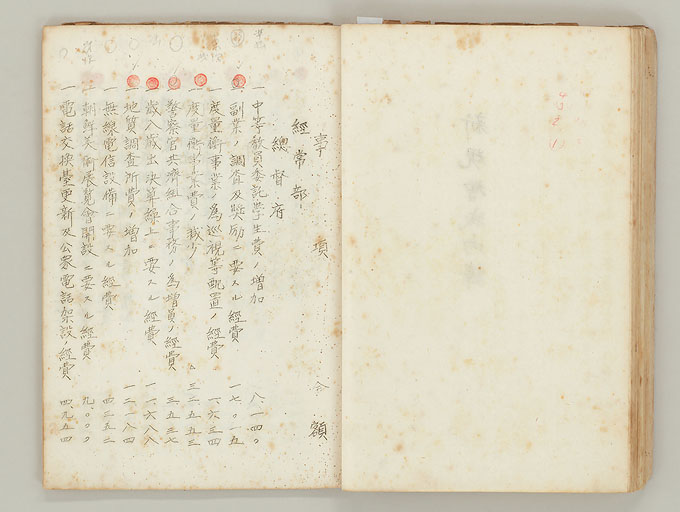 事項 金額
經常部
總督府
一 中等教員委託學生費ノ増加 八、一四〇
一 副業ノ調査及奬励ニ要スル經費 一七、〇一五
一 度量衡事業ノ為巡視等配置ノ經費 一、六三四
一 度量衡事業費ノ減少 △三二、五五三
一 警察官共濟組合事務ノ為増員ノ經費 三、五三七
一 歳入歳出決算繰上ニ要スル經費 一一、六八八
一 地質調査所費ノ増加 一二、一八四
一 無線電信設備ニ要スル經費 四二、五五二
一 朝鮮美術展覧會開設ニ要スル經費 九、〇〇〇
一 電話交換臺更新及公衆電話架設ノ經費 四、九五四